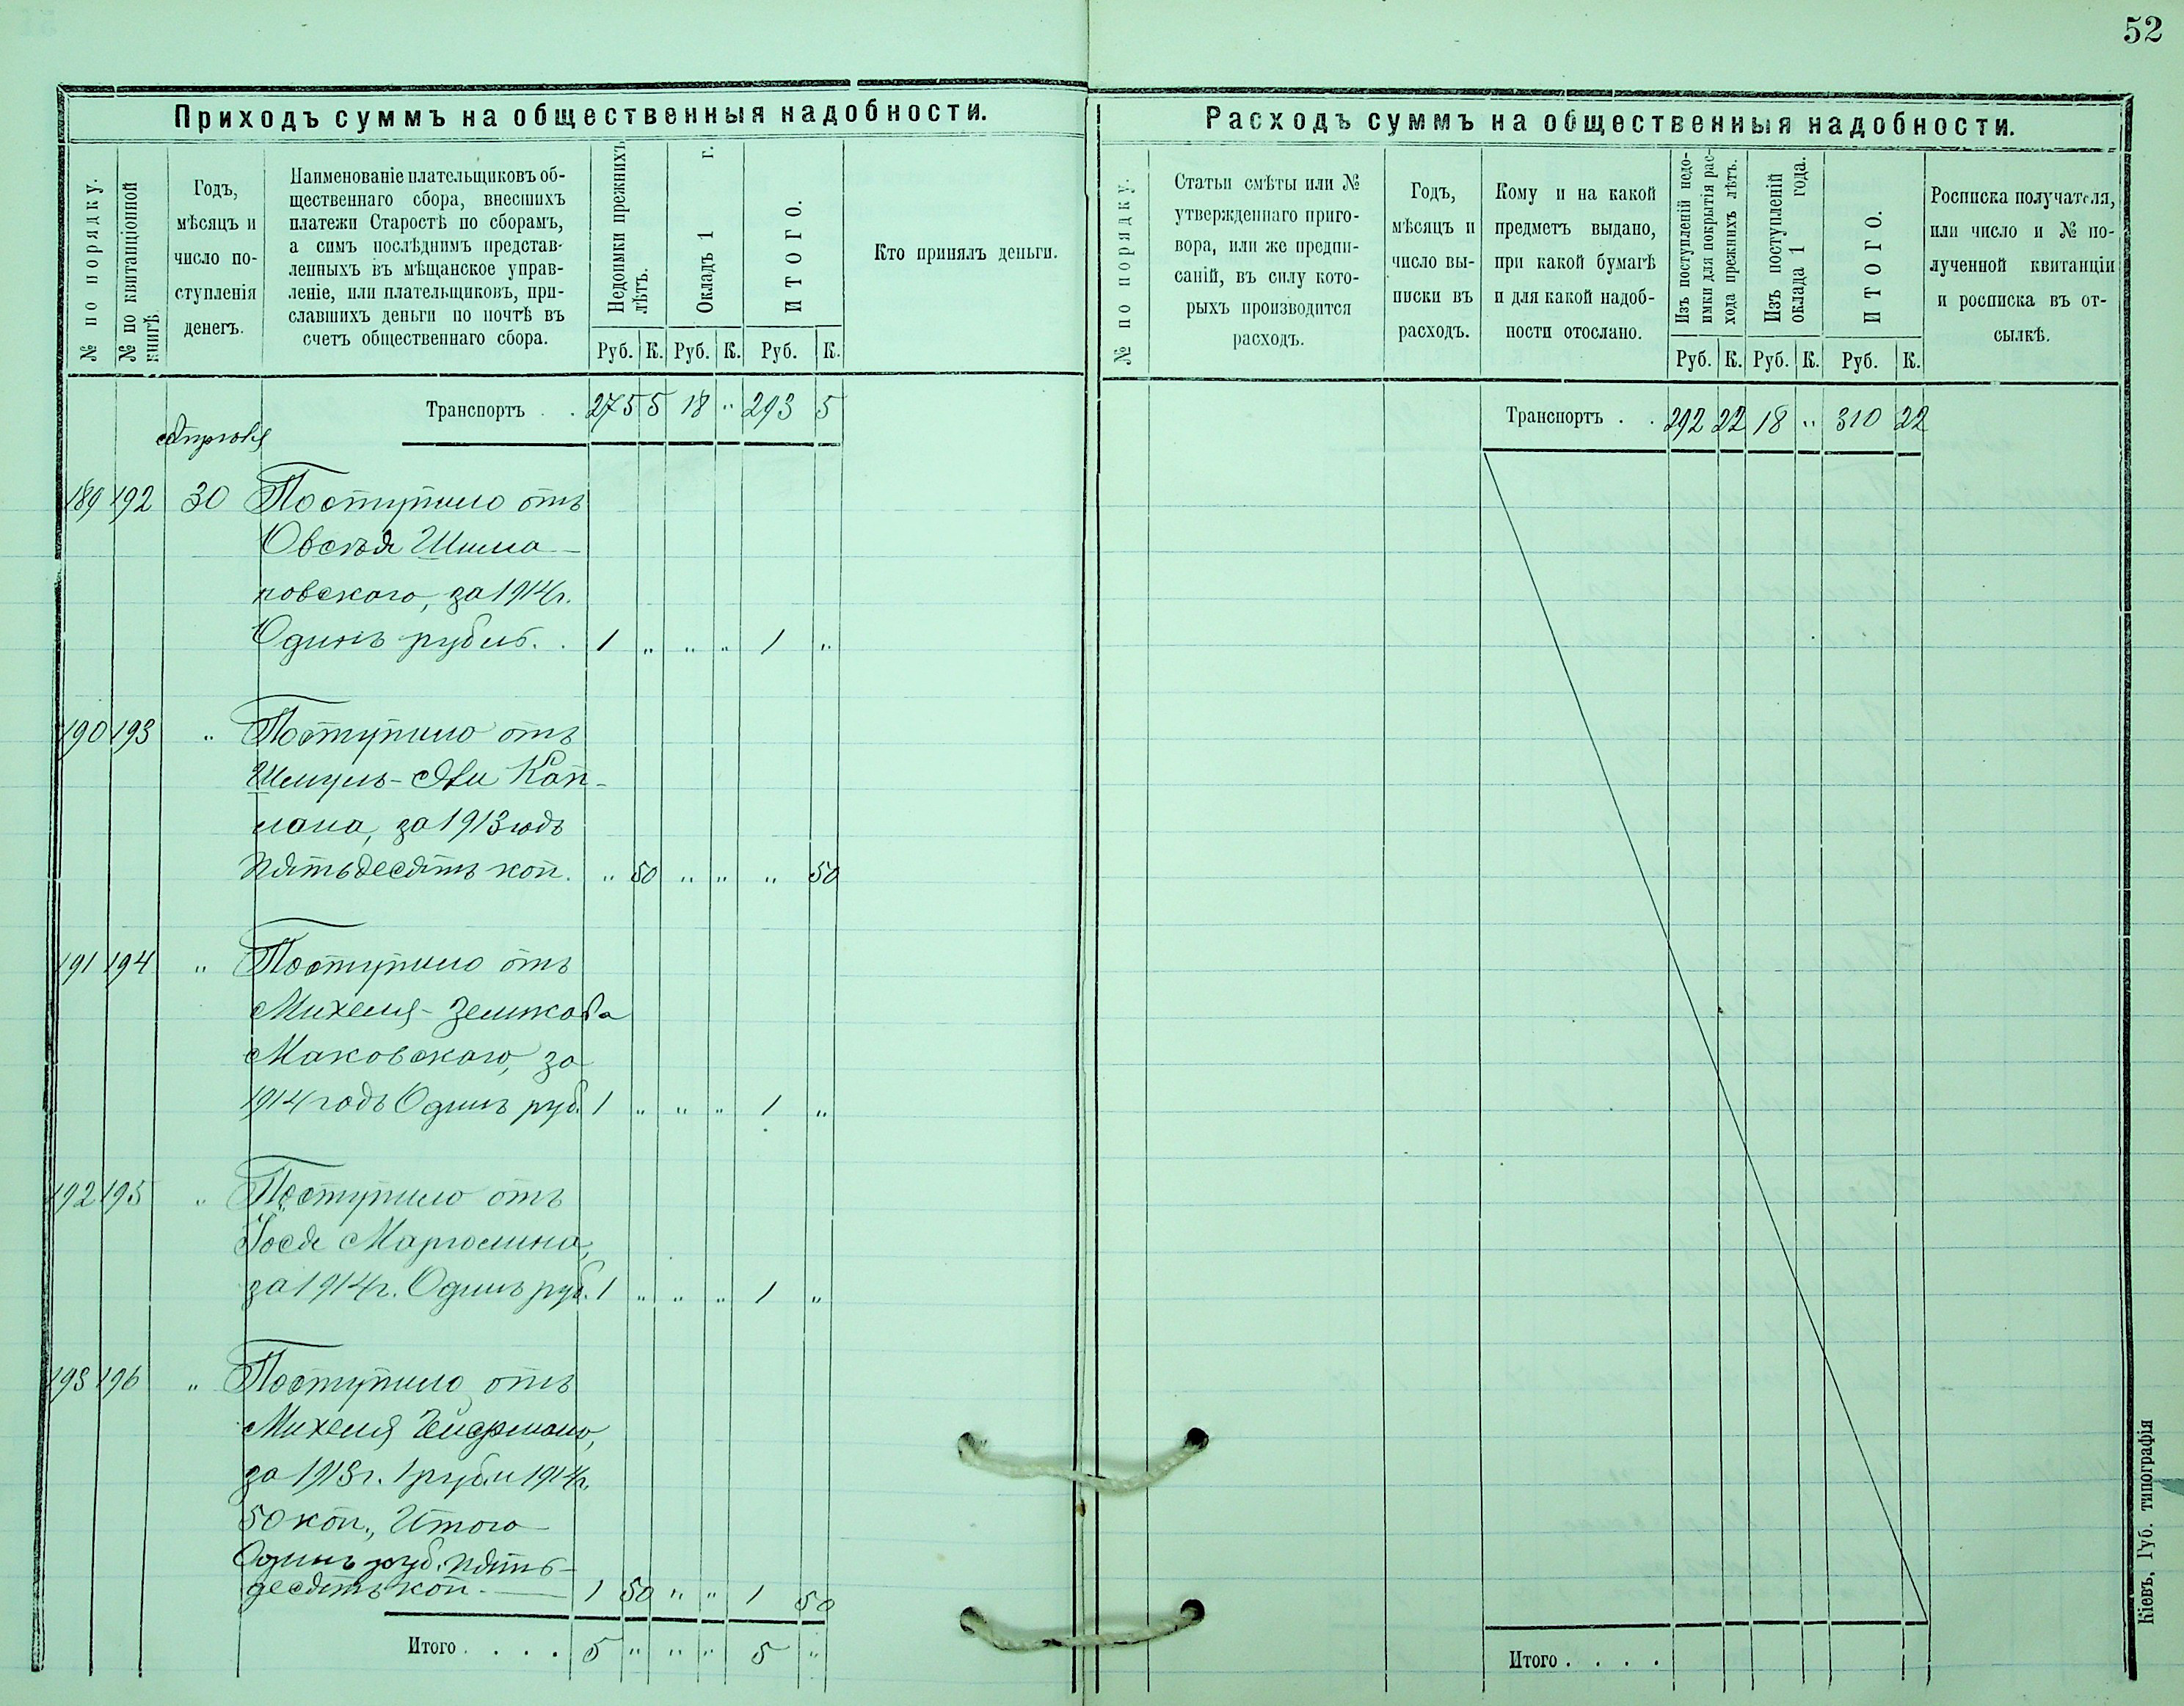 52
Приходъ суммъ на общественныя надобности.
№ по порядку.
№ по квитанціонной
книгѣ.
Годъ,
мѣсяцъ и
число по-
ступленія
денегъ.
Наименованіе плательщиковъ об-
щественнаго сбора, внесшихъ
платежи Старостѣ по сборамъ,
а симъ послѣднимъ представ-
ленныхъ въ мѣщанское управ-
леніе, или плательщиковъ, при-
славшихъ деньги по почтѣ въ
счетъ общественнаго сбора.
Недоимки прежнихъ
лѣтъ.
Окладъ 1 г.
ИТОГО.
Кто принялъ деньги.
Руб. К. Руб. К. Руб. К.
Транспортъ . . 275 5 18 " 293 5
Апрѣля
189 192 30 Поступило отъ
Овсѣя Шима-
новского, за 1914 г.
Одинъ рубль. . 1 " " " 1 "
190 193 " Поступило отъ
Шмуль- Кап-
лана, за 1913 годъ
Пятьдесятъ коп. " 50 " " " 50
191 194 " Поступило отъ
Михеля-Зеликова
Маковского, за
1914 годъ Одинъ руб. 1 " " " 1 "
192 195 " Поступило отъ
Іося Марголина,
за 1914 г. Одинъ руб. 1 " " " 1 "
193 196 " Поступило отъ
Михеля
за 1913 г. 1 руб. и 1914 г.
50 коп., Итого
Одинъ руб. пять-
десятъ коп. 1 50 " " 1 50
Итого . . . . 5 " " " 5 "
Расходъ суммъ на общественныя надобности.
№ по порядку.
Статьи смѣты или №
утвержденнаго приго-
вора, или же предпи-
саній, въ силу кото-
рыхъ производится
расходъ.
Годъ,
мѣсяцъ и
число вы-
писки въ
расходъ.
Кому и на какой
предметъ выдано,
при какой бумагѣ
и для какой надоб-
ности отослано.
Изъ поступленій недо-
имки для покрытія рас-
хода прежнихъ лѣтъ.
Изъ поступленій
оклада 1 года.
ИТОГО.
Росписка получателя,
или число и № по-
лученной квитанціи
и росписка въ от-
сылкѣ.
Руб. К. Руб. К. Руб. К.
Транспортъ . . 292 22 18 " 310 22
Итого . . . .
Кіевъ, Губ. типографія